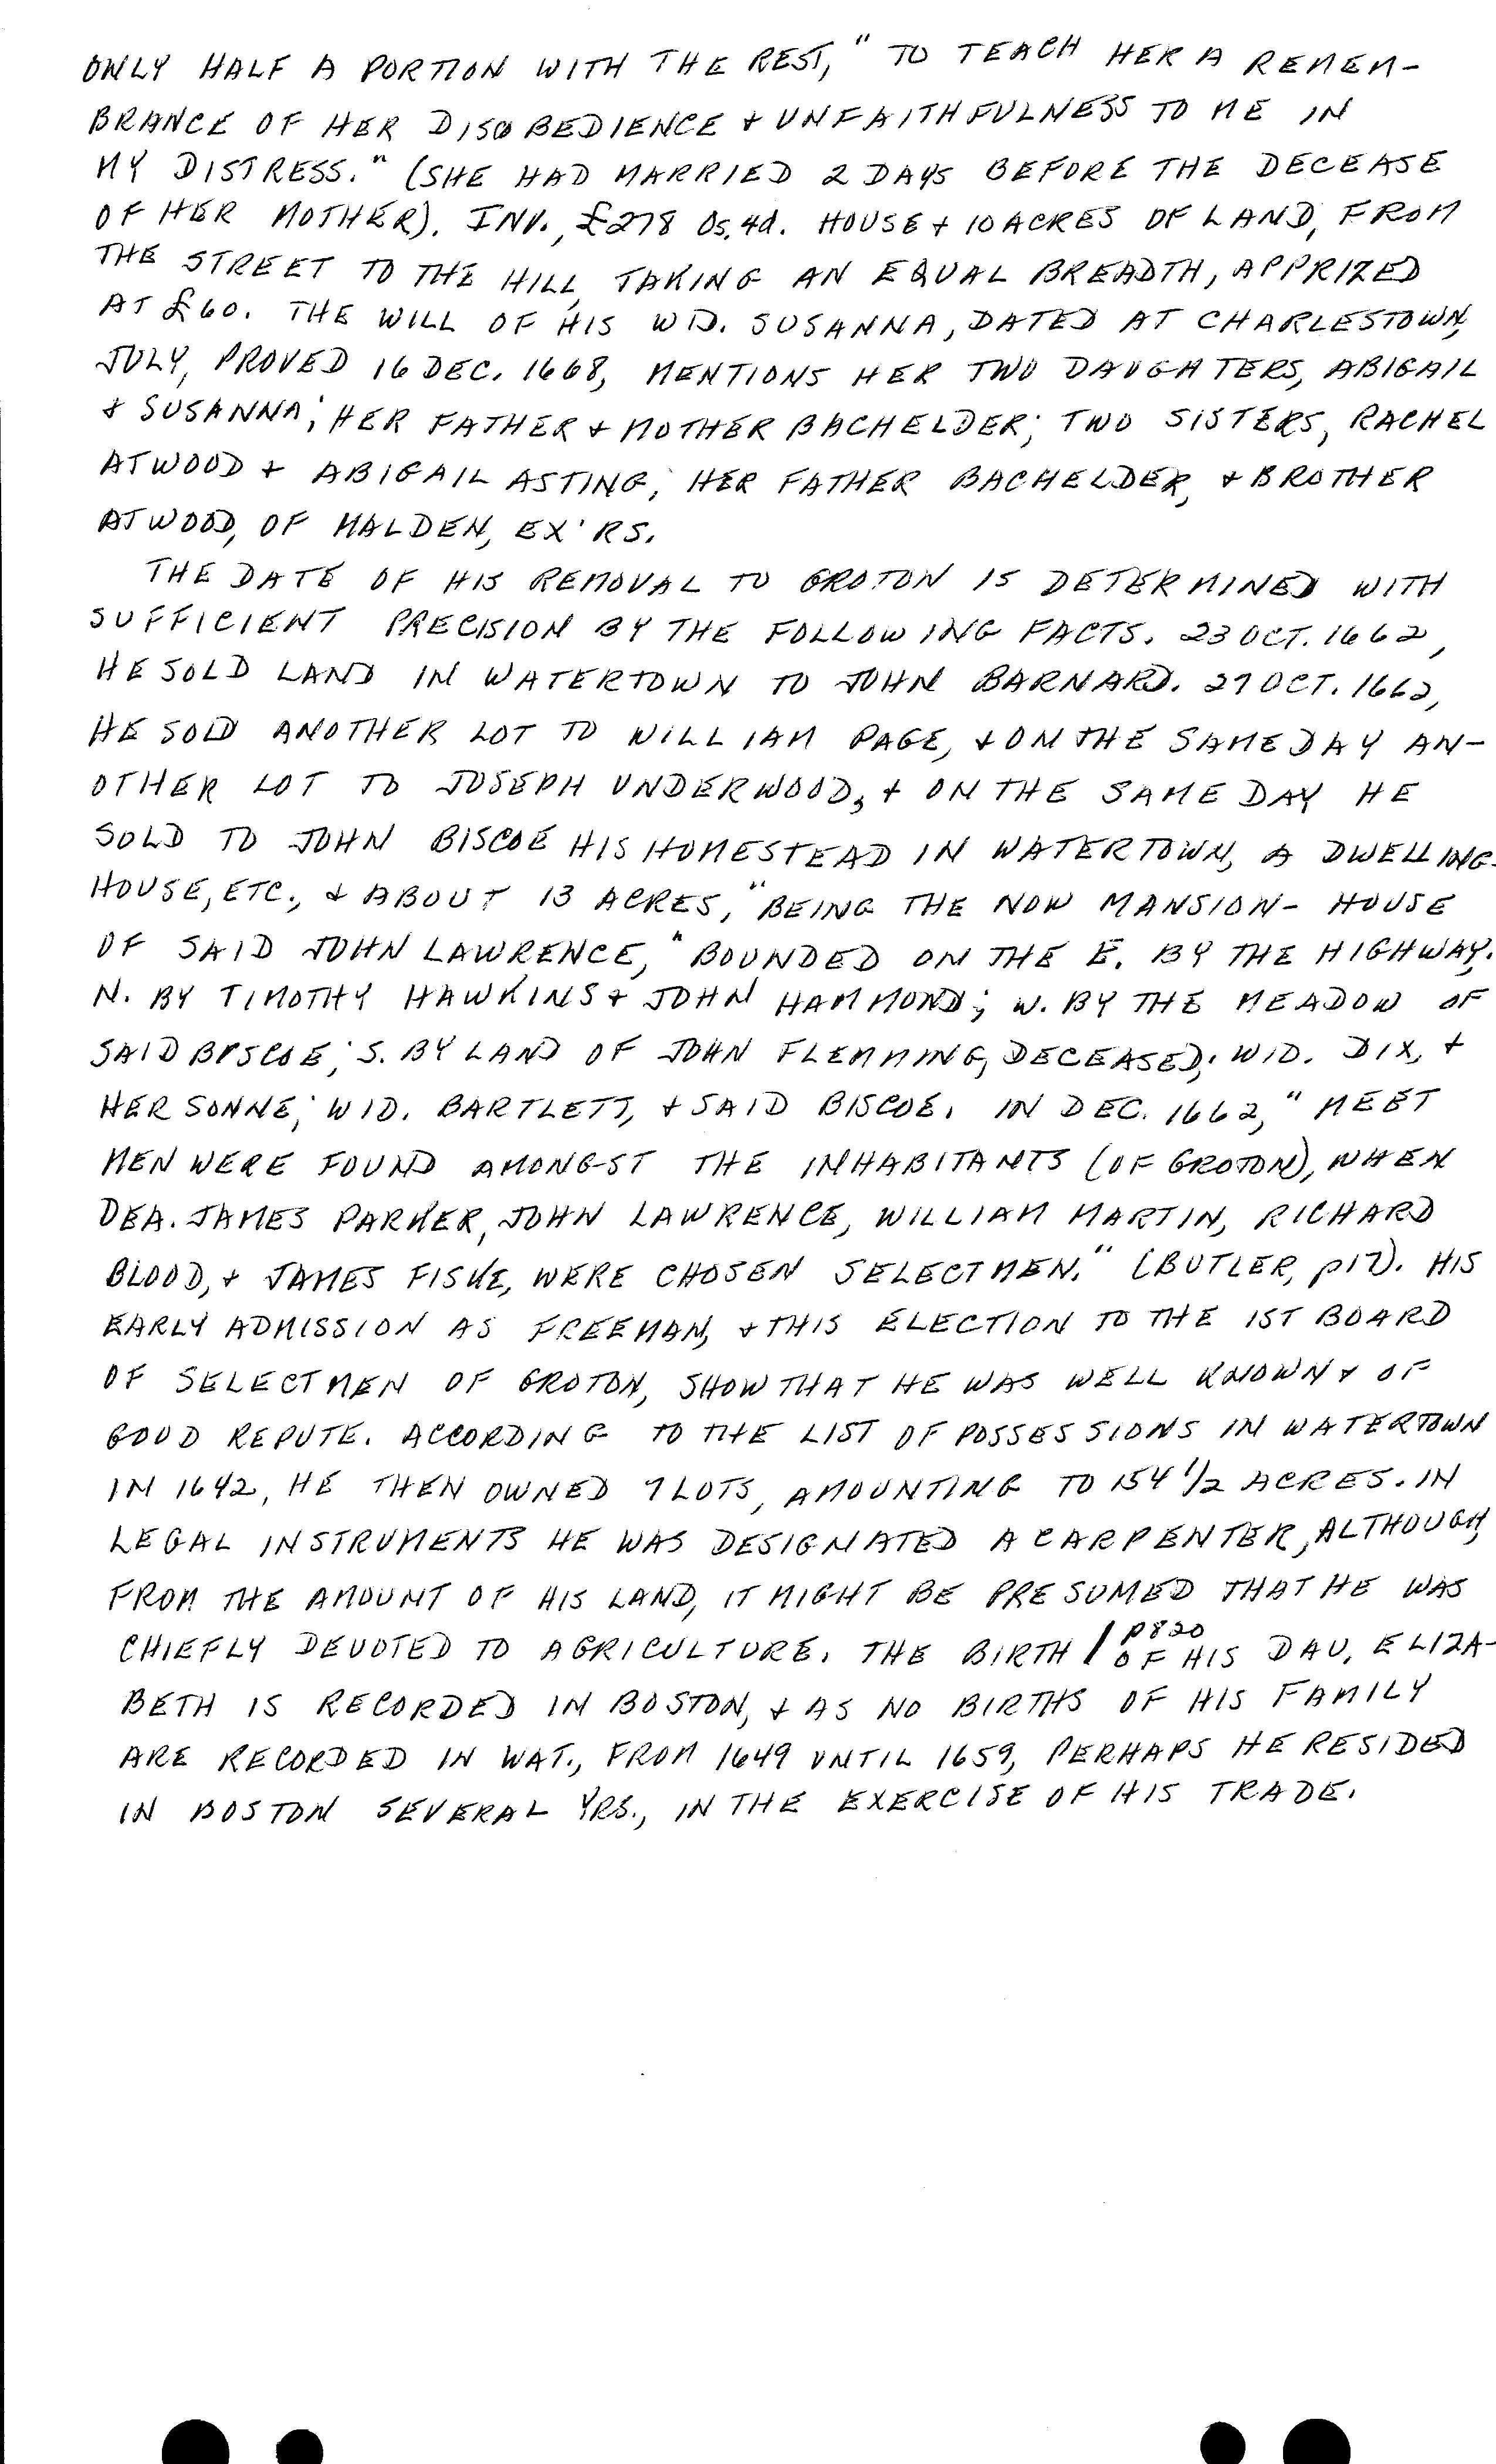 ONLY HALF A PORTION WITH THE REST, " TO TEACH HER A REMEM-
BRANCE OF HER DISOBEDIENCE & UNFAITHFULNESS TO ME IN
MY DISTRESS." (SHE HAD MARRIED 2 DAYS BEFORE THE DECEASE
OF HER MOTHER). INV., £278 0s. 4d. HOUSE & 10 ACRES OF LAND, FROM
THE STREET TO THE HILL, TAKING AN EQUAL BREADTH, APPRIZED
AT £60. THE WILL OF HIS WD. SUSANNA, DATED AT CHARLESTOWN,
JULY, PROVED 16 DEC. 1668, MENTIONS HER TWO DAUGHTERS, ABIGAIL
& SUSANNA; HER FATHER & MOTHER BACHELDER; TWO SISTERS, RACHEL
ATWOOD & ABIGAIL ASTING; HER FATHER BACHELDER, & BROTHER
ATWOOD, OF MALDEN, EX'RS.
THE DATE OF HIS REMOVAL TO GROTON IS DETERMINED WITH
SUFFICIENT PRECISION BY THE FOLLOWING FACTS. 23 OCT. 1662,
HE SOLD LAND IN WATERTOWN TO JOHN BARNARD. 27 OCT. 1662,
HE SOLD ANOTHER LOT TO WILLIAM PAGE, & ON THE SAME DAY AN-
OTHER LOT TO JOSEPH UNDERWOOD, & ON THE SAME DAY HE
SOLD TO JOHN BISCOE HIS HOMESTEAD IN WATERTOWN, A DWELLING-
HOUSE, ETC., & ABOUT 13 ACRES, "BEING THE NOW MANSION-HOUSE
OF SAID JOHN LAWRENCE," BOUNDED ON THE E. BY THE HIGHWAY.
N. BY TIMOTHY HAWKINS & JOHN HAMMOND; W. BY THE MEADOW OF
SAID BISCOE; S. BY LAND OF JOHN FLEMMING, DECEASED; WID. DIX, &
HER SONNE; WID. BARTLETT, & SAID BISCOE. IN DEC. 1662, " MEET
MEN WERE FOUND AMONGST THE INHABITANTS (OF GROTON), WHEN
DEA. JAMES PARKER, JOHN LAWRENCE, WILLIAM MARTIN, RICHARD
BLOOD, & JAMES FISKE, WERE CHOSEN SELECTMEN." (BUTLER, p17). HIS
EARLY ADMISSION AS FREEMAN, & THIS ELECTION TO THE 1ST BOARD
OF SELECTMEN OF GROTON, SHOW THAT HE WAS WELL KNOWN & OF
GOOD REPUTE. ACCORDING TO THE LIST OF POSSESSIONS IN WATERTOWN
IN 1642, HE THEN OWNED 7 LOTS, AMOUNTING TO 154 1/2 ACRES. IN
LEGAL INSTRUMENTS HE WAS DESIGNATED A CARPENTER, ALTHOUGH,
FROM THE AMOUNT OF HIS LAND, IT MIGHT BE PRESUMED THAT HE WAS
CHIEFLY DEVOTED TO AGRICULTURE. THE BIRTH / p820 OF HIS DAU, ELIZA-
BETH IS RECORDED IN BOSTON, & AS NO BIRTHS OF HIS FAMILY
ARE RECORDED IN WAT., FROM 1649 UNTIL 1659, PERHAPS HE RESIDED
IN BOSTON SEVERAL YRS., IN THE EXERCISE OF HIS TRADE.